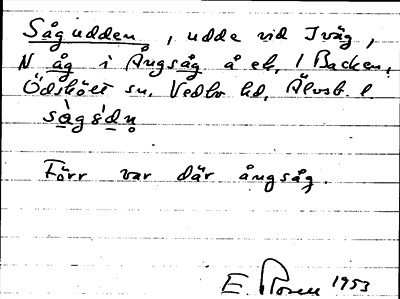 Sågudden, udde vid Iväg,
N åg i Ångsåg å ek. 1 Backen,
Ödskölt sn, Vedbo hd, Älvsb. l.
sàgúdn̥
Förr var där ångsåg.
E. Rosell 1953